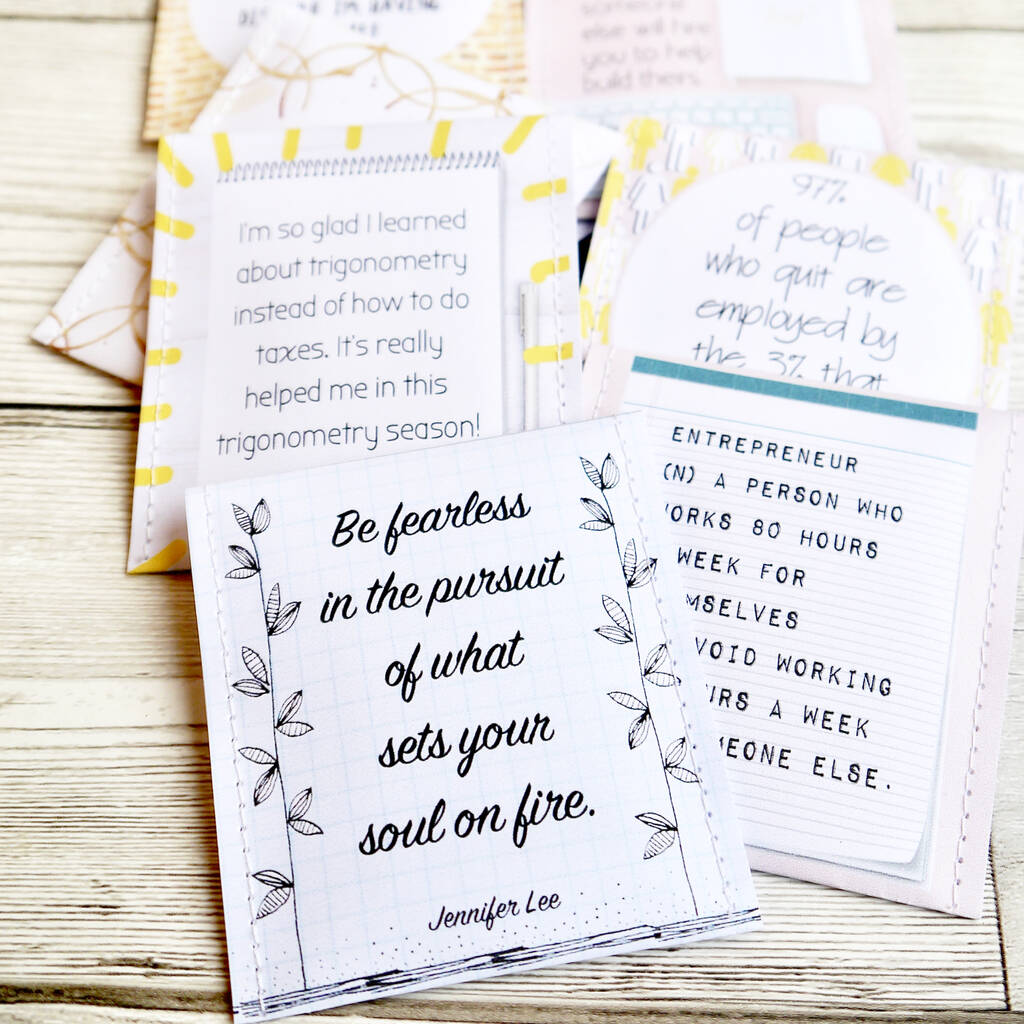 I'M HAVING
someone
else will hire
you to help
build theirs.
I'm so glad I learned
about trigonometry
instead of how to do
taxes. It's really
helped me in this
trigonometry season!
97%
of people
who quit are
employed by
the 3% that
ENTREPRENEUR
(N) A PERSON WHO
WORKS 80 HOURS
WEEK FOR
MSELVES
VOID WORKING
URS A WEEK
MEONE ELSE.
Be fearless
in the pursuit
of what
sets your
soul on fire.
Jennifer Lee